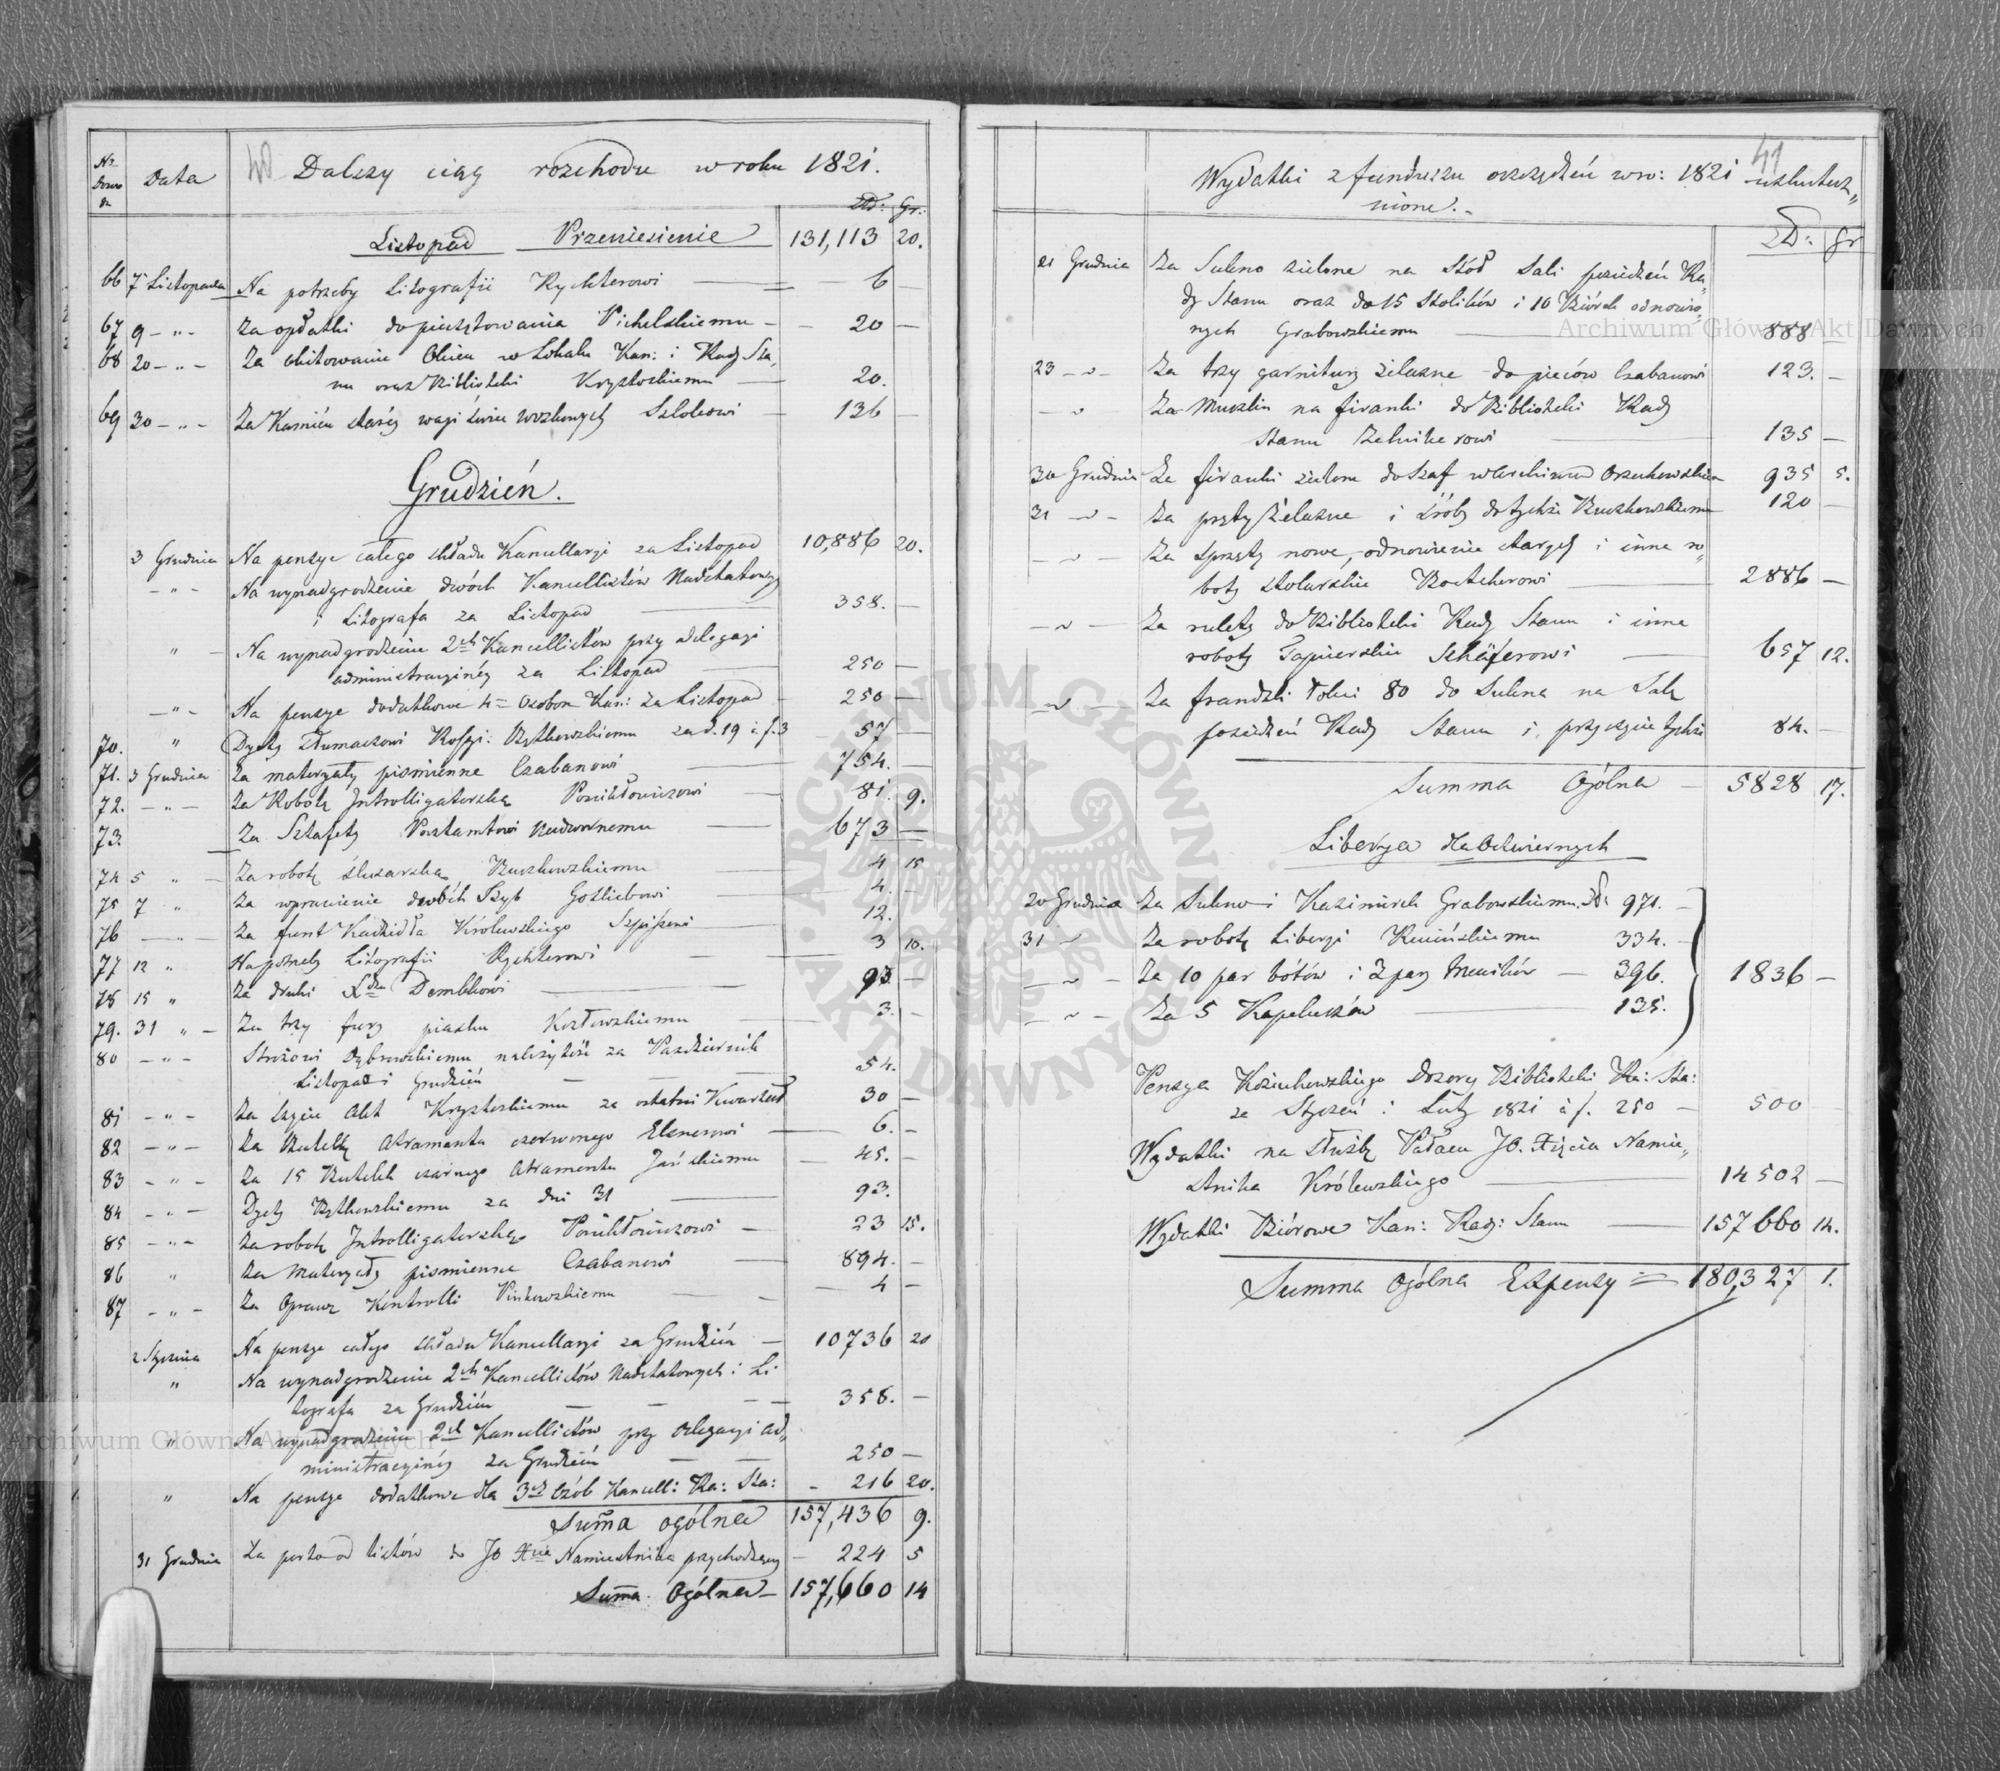 No Dowodu
Data
40
Dalszy ciąg rozchodu w roku 1821.
Złd: Gr:
Listopad Przeniesienie 131,113 20.
66 7 Listopada Na potrzeby Litografii Rychterowi — 6
67 9 — „ — Za opłatki do pieczętowania Pichelskiemu — 20 —
68 20 — „ — Za obitowanie Okien w Lokalu Kan: i Rady Sta„
nu oraz Biblioteki Krysztoskiemu — 20.
69 30 — „ — Za Kamień starej wagi świec woskowych Szlokowi — 136 —
Grudzień.
3 Grudnia Na pensye całego składu Kancellaryi za Listopad 10,886 20.
— „ — Na wynadgrodzenie dwóch Kancellistów Nadetatowych
i Litografa za Listopad — 358. —
„ — Na wynadgrodzenie 2ch Kancellistów przy delegacyi
administracyjnéy za Listopad — 250 —
— „ — Na pensye dodatkowe 4 Osobom Kan: za Listopad — 250 —
70. „ Dyety Tłumaczowi Rossyi: Bytkowskiemu za d. 19 à f. 3 — 57 —
71. 3 Grudnia Za materyały pismienne Czabanowi — 754. —
72. — „ — Za Robotę Introlligatorską Poniktowiczowi — 81. 9.
73. Za Sztafety Pocztamtowi Nadwornemu — 673 —
74 5 „ — Za robotę ślusarską Buczkowskiemu — 4 15
75 7 „ Za wprawienie dwóch Szyb Gotliebowi — 4. —
76 — „ — Za funt Kadzidła Królewskiego — 12. —
77 12 „ Na potrzeby Litografii Rychterowi — 3 10.
78 15 „ Za druki Dembkowi — 93 —
79. 31 „ — Za trzy fury piasku Kozłowskiemu — 3. —
80 — „ — Stróżowi Dąbrowskiemu należytość za Pazdziernik
Listopad i Grudzień — 54.
81 — „ — Za szycie Akt Krysztoskiemu za ostatni Kwartał 30 —
82 — „ — Za Butelkę Atramentu czerwonego Elsnerowi — 6. —
83 — „ — Za 15 Butelek czarnego Atramentu Jasińskiemu — 45. —
84 — „ — Dyety Bytkowskiemu za dni 31 — 93.
85 — „ — Za robotę Introlligatorską Poniktowiczowi — 23 15.
86 „ Za Materyały pismienne Czabanowi — 894. —
87 — „ — Za Oprawę Kontrolli Pinkowskiemu — 4 —
2 Stycznia Na pensye całego składu Kancellaryi za Grudzień — 10736 20
„ Na wynadgrodzenie 2ch Kancellistów Nadetatowych i Li-
tografa za Grudzień — — — 358. —
„ Na wynadgrodzenie 2ch Kancellistów przy Delegacyi ad„
ministracyjnéy za Grudzień — — 250 —
„ Na pensye dodatkowe dla 3ch Osób Kancell: Ra: Sta: — 216 20.
Summa ogólna 157,436 9.
31 Grudnia Za porto od listów do JO Xcia Namiestnika przychodzących — 224 5
Summa Ogólna — 157,660 14
41
Wydatki z funduszu oszczędzeń w ro: 1821 uskutecz„
nione. —
Złd: gr
21 Grudnia Za Sukno zielone na Stół Sali posiedzeń Ra„
dy Stanu oraz do 15 Stolików i 10 Biórek odnowio„
nych Grabowskiemu — 888 —
23 — „ — Za trzy garnitury żelazne do pieców Czabanowi 123. —
— „ Za Muszlin na firanki do Biblioteki Rady
Stanu Zelnikerowi — 135 —
30 Grudnia Za firanki zielone do Szaf w Archiwum Orzechowskiem 935 5.
31 — „ — Za pręty żelazne i śróby do tychże Buczkowskiemu 120 —
— „ — Za Sprzęty nowe, odnowienie starych i inne ro„
boty stolarskie Boettcherowi — 2886 —
— „ — Za rulety do Biblioteki Rady Stanu i inne
roboty Tapicerskie Schäferowi — 657 12.
— „ — Za frandzli łokci 80 do Sukna na Salę
posiedzeń Rady Stanu i przyszycie tychże 84. —
Summa Ogólna — 5828 17.
Liberya dla Odźwiernych
20 Grudnia Za Sukno i Kazimirek Grabowskiemu Zł: 971. —
31 „ Za robotę Liberyi Kunińskiemu 334. —
— „ — Za 10 par bótów i 2 pary trzewików — 396. 1836 —
— „ — Za 5 Kapeluszów — 135.
Pensya Koziuchowskiego Dozorcy Biblioteki Ra: Sta:
za Styczeń i Luty 1821 à f. 250 — 500 —
Wydatki na służbę Pałacu JO. Xięcia Namie„
stnika Królewskiego — 14502 —
Wydatki Biórowe Kan: Rady: Stanu — 157660 14.
Summa Ogólna Expensy = 180,327 1.
Archiwum Główne Akt Dawnych
Archiwum Główne Akt Dawnych
ARCHIWUM GŁÓWNE AKT DAWNYCH